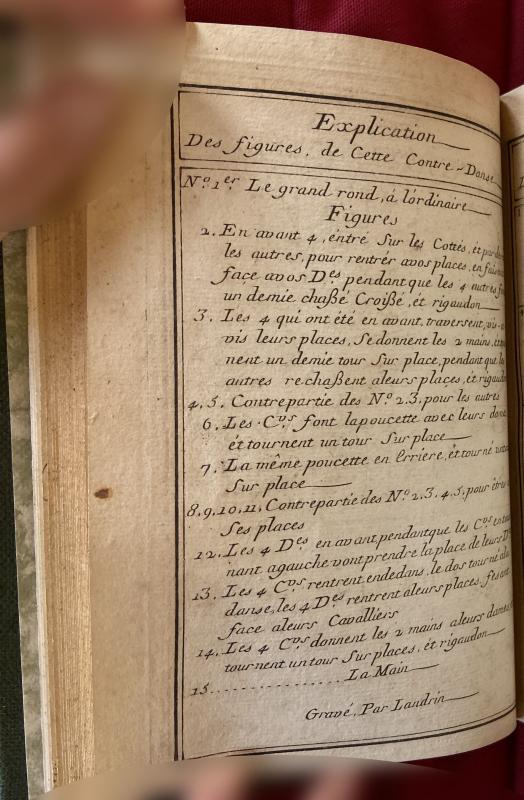 Explication
Des figures, de Cette Contre-Danse
N.º 1.er Le grand rond, á lòrdinaire
Figures
2. En avant 4, éntré Sur les Cottés, ét
les autres, pour rentrér avos places, en
face avos D.es pendant que les 4 autres
un demie chaßé Croißé, ét rigaudon
3. Les 4 qui ont été en avant, traversent, vis-a
vis leurs places, Se donnent les 2 mains, ét
nent un demie tour Sur place, pendant que les
autres rechaßent aleurs places, ét rigaudon
4, 5. Contrepartie des N.º 2.3. pour les autres
6. Les C.vs font lapoucette avec leurs
ét tournent un tour Sur place
7. La même poucette en Erriere, ét tour né
Sur place
8.9.10.11. Contrepartie des N.º 2.3.4.5. pour
Ses places
12. Les 4 D.es en avant, pendantque les C.vs
nant agauche vont prendre la place de leurs
13. Les 4 C.vs rentrent endedans, le dos tourné
danse, les 4 D.es rentrent aleurs places,
face aleurs Cavalliers
14. Les 4 C.vs donnent les 2 mains aleurs
tournent un tour Sur places, ét rigaudon
15.................. La Main
Gravé, Par Landrin